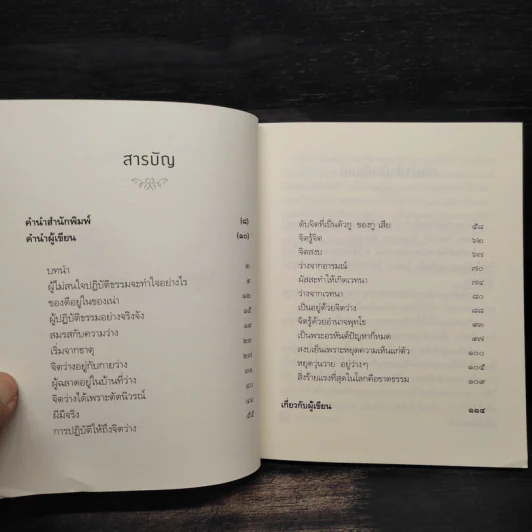 สารบัญ
คำนำสำนักพิมพ์ (๘)
คำนำผู้เขียน (๑๐)
บทนำ ๒
ผู้ไม่สนใจปฏิบัติธรรมจะทำใจอย่างไร ๙
ของดีอยู่ในของเน่า ๑๒
ผู้ปฏิบัติธรรมอย่างจริงจัง ๑๕
สมรสกับความว่าง ๑๙
เริ่มจากธาตุ ๒๓
จิตว่างอยู่กับกายว่าง ๒๗
ผู้ฉลาดอยู่ในบ้านที่ว่าง ๓๗
จิตว่างได้เพราะตัดนิวรณ์ ๔๐
ผีมีจริง ๔๔
การปฏิบัติให้ถึงจิตว่าง ๕๕
ดับจิตที่เป็นตัวกู ของกู เสีย ๕๘
จิตรู้จิต ๖๒
จิตสงบ ๖๗
ว่างจากอารมณ์ ๗๐
ผัสสะทำให้เกิดเวทนา ๗๔
ว่างจากเวทนา ๘๐
เป็นอยู่ด้วยจิตว่าง ๘๘
จิตรู้ด้วยอำนาจพุทโธ ๙๓
เป็นพระอรหันต์ปัญหาก็หมด ๙๗
สงบเย็นเพราะหยุดความเห็นแก่ตัว ๑๐๐
หยุดวุ่นวาย อยู่ว่างๆ ๑๐๕
สิ่งร้ายแรงที่สุดในโลกคือขาดธรรม ๑๐๙
เกี่ยวกับผู้เขียน ๑๑๔